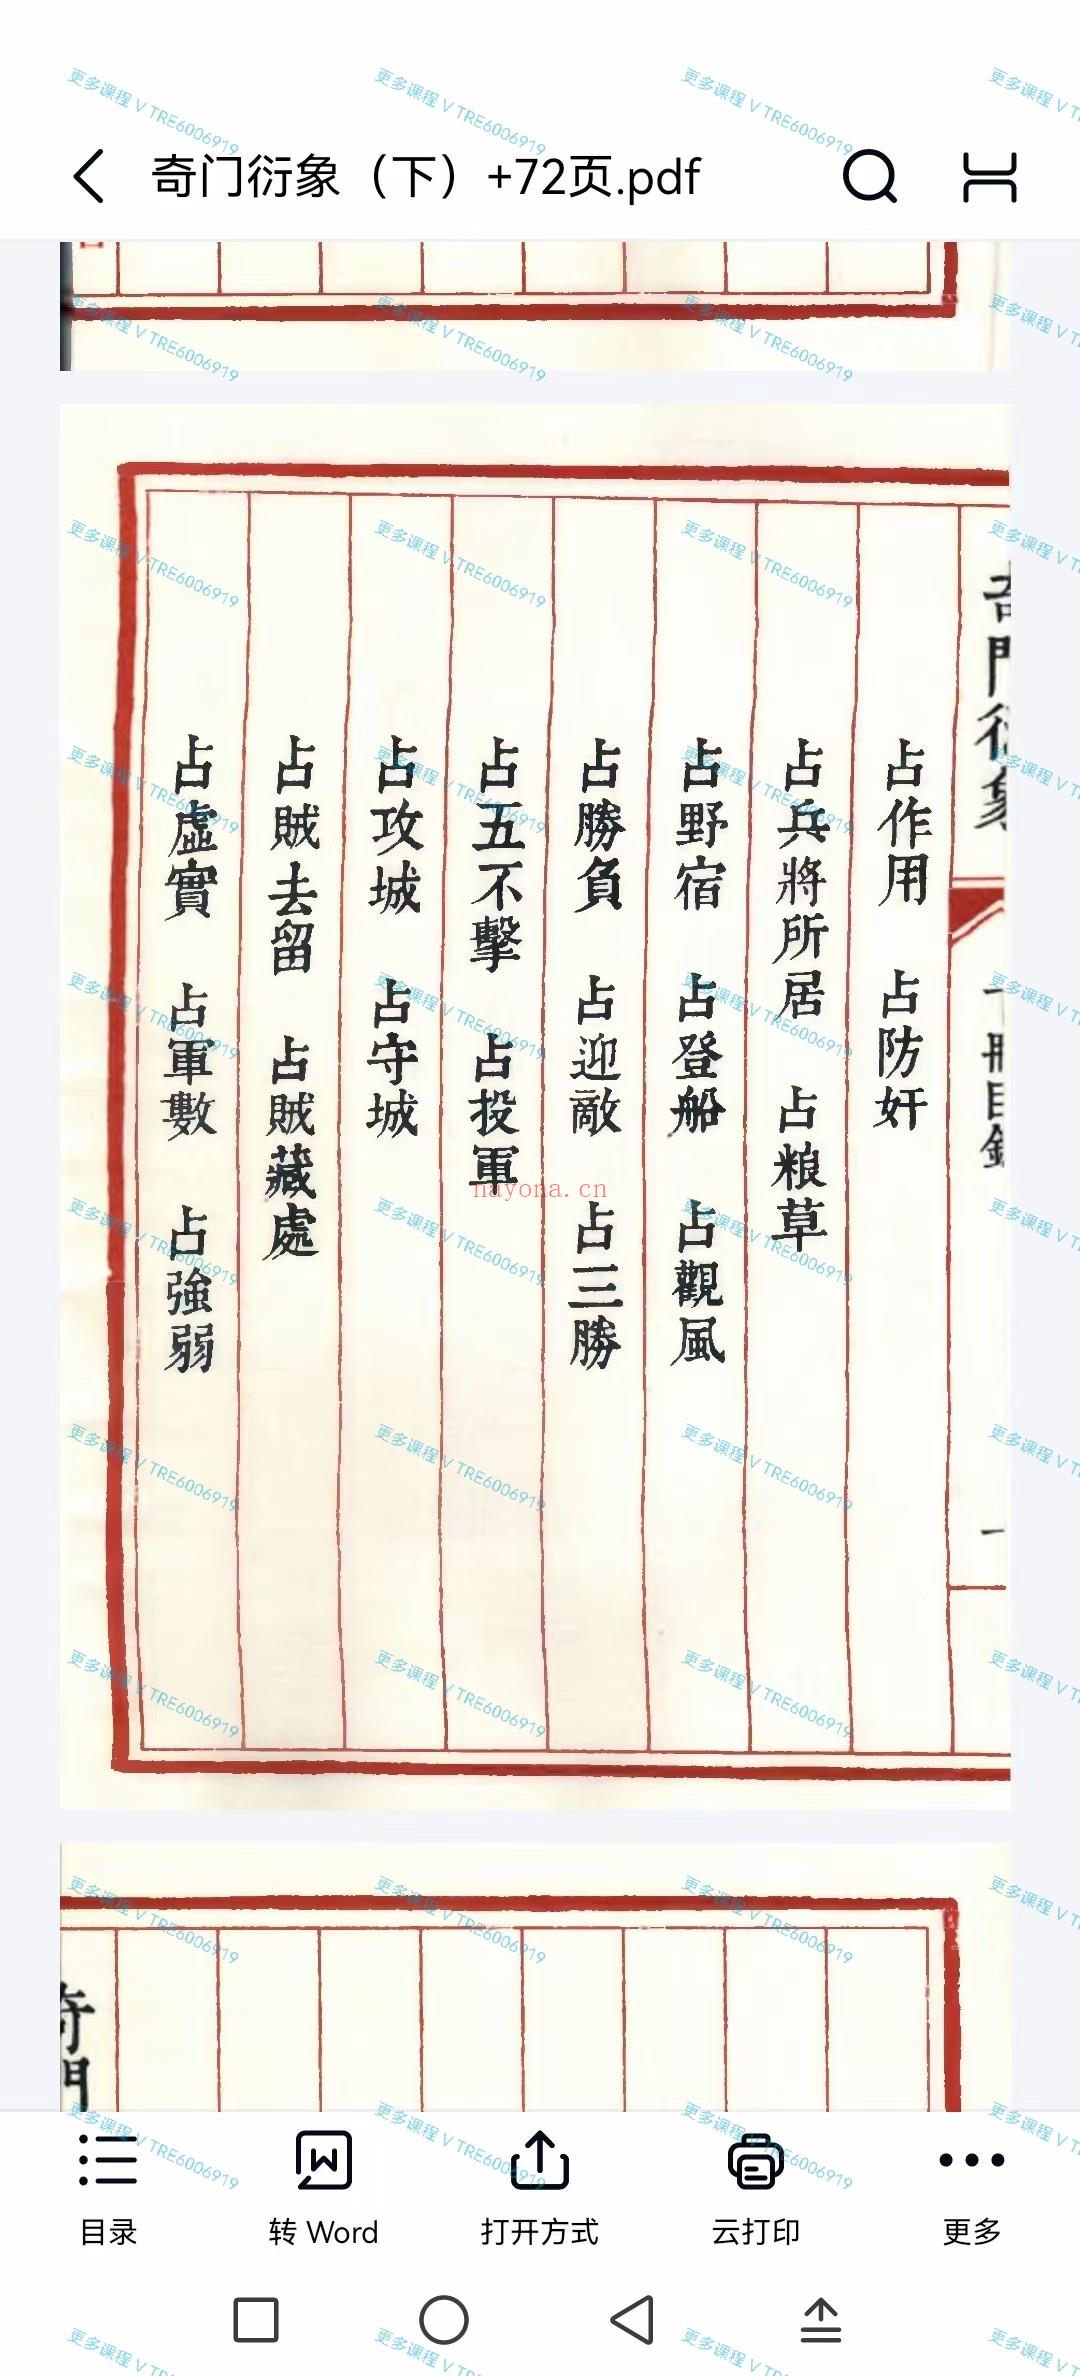 奇门衍象（下）+72页.pdf
占作用 占防奸
占兵將所居 占粮草
占野宿 占登船 占觀風
占勝負 占迎敵 占三勝
占五不擊 占投軍
占攻城 占守城
占賊去留 占賊藏處
占虛實 占軍數 占強弱
奇門衍象
冊目錄
一
nayona.cn
奇門
目录
转 Word
打开方式
云打印
更多
更多课程 V TRE6006919